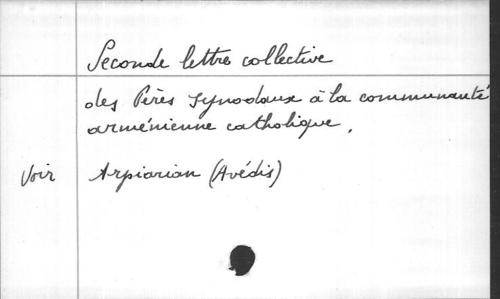 Seconde lettre collective
des Pères synodaux à la communauté
arménienne catholique.
Voir Arpiarian (Avédis)